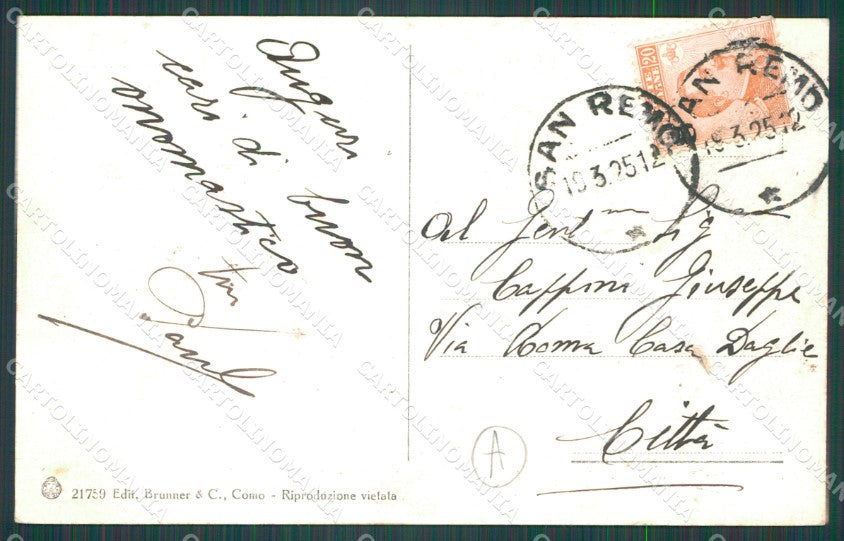 Auguri
cari di buon
onomastico
20 CENT
SAN REMO
19.3.25.12
SAN REMO
19.3.25.12
Al Gent.mo Sig
Capponi Giuseppe
Via Roma Casa Daglie
Città
A
21759 Edit. Brunner & C., Como - Riproduzione vietata
CARTOLINOMANIA